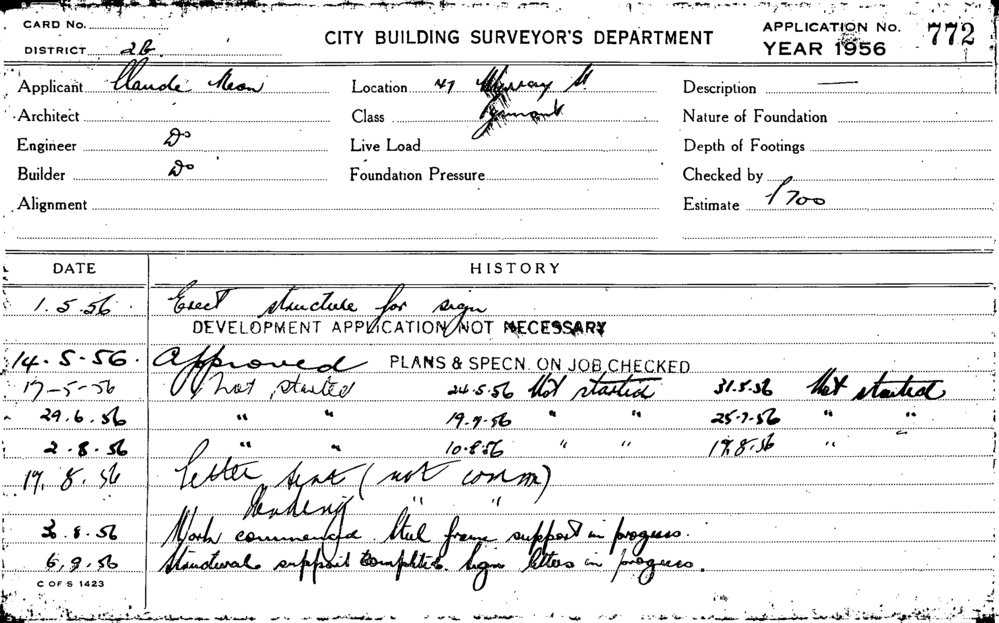 CARD No.
DISTRICT 2B
CITY BUILDING SURVEYOR'S DEPARTMENT
APPLICATION No. 772
YEAR 1956
Applicant Claude Neon
Location 47 Murray St
Description —
Architect
Class
Nature of Foundation
Engineer Do
Live Load
Depth of Footings
Builder Do
Foundation Pressure
Checked by
Alignment
Estimate £700
DATE HISTORY
1.5.56 Erect structure for sign
DEVELOPMENT APPLICATION NOT NECESSARY
14-5-56 Approved PLANS & SPECN. ON JOB CHECKED
17-5-56 Not started 24.5.56 Not started 31.5.56 Not started
29.6.56 " " 19.7.56 " " 25.7.56 " "
2.8.56 " " 10.8.56 " " 17.8.56 " "
17.8.56 Letter sent (not comm)
Pending " "
.8.56 Work commenced. Steel frame support in progress.
6.9.56 Structural support completed. Sign letters in progress.
C OF S 1423